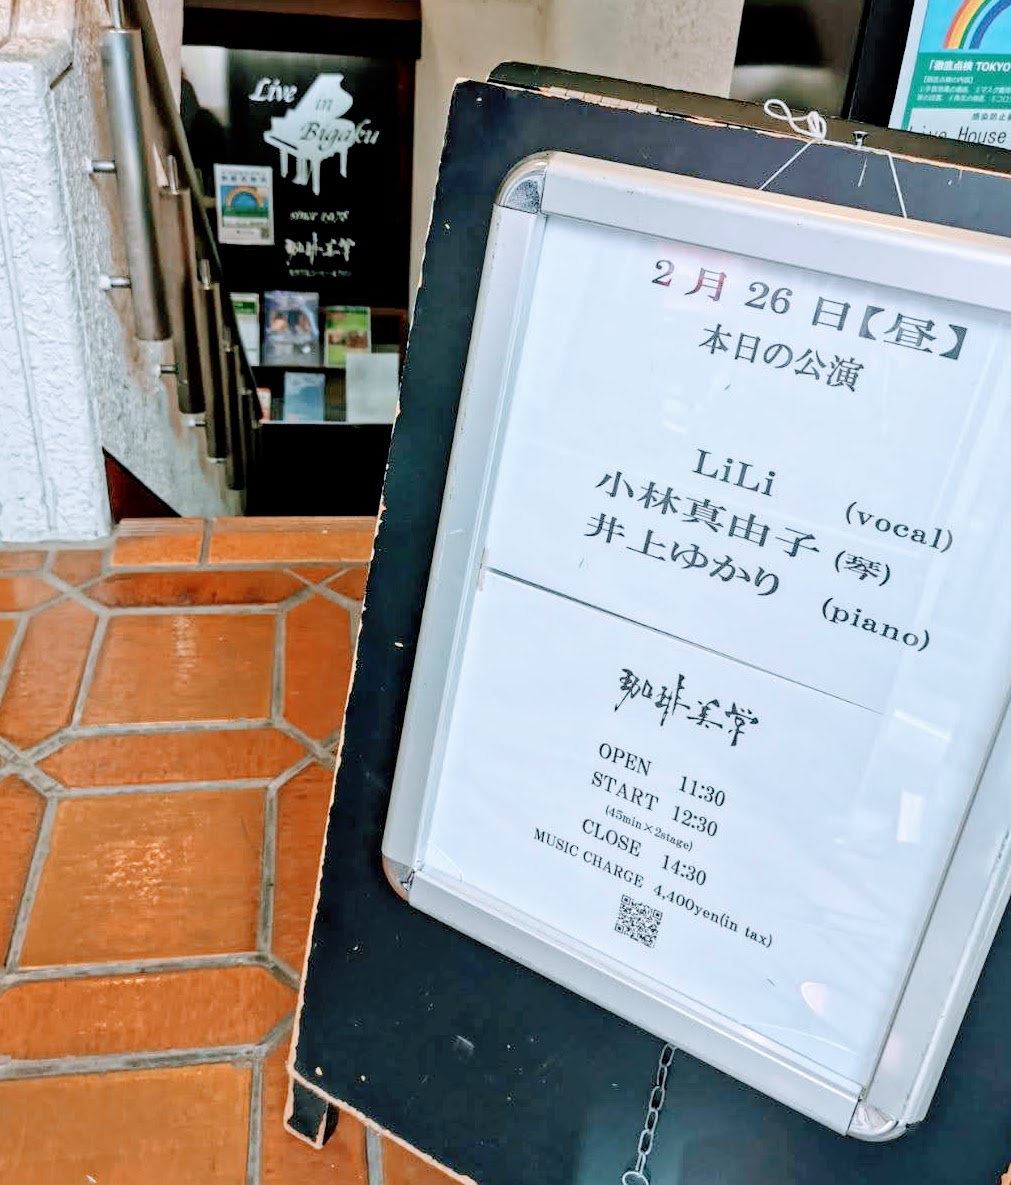 Live in Bigaku
珈琲美學
「徹底点検 TOKYO
Live House
2月26日【昼】
本日の公演
LiLi (vocal)
小林真由子 (琴)
井上ゆかり (piano)
珈琲美學
OPEN 11:30
START 12:30
(45min×2stage)
CLOSE 14:30
MUSIC CHARGE 4,400yen(in tax)